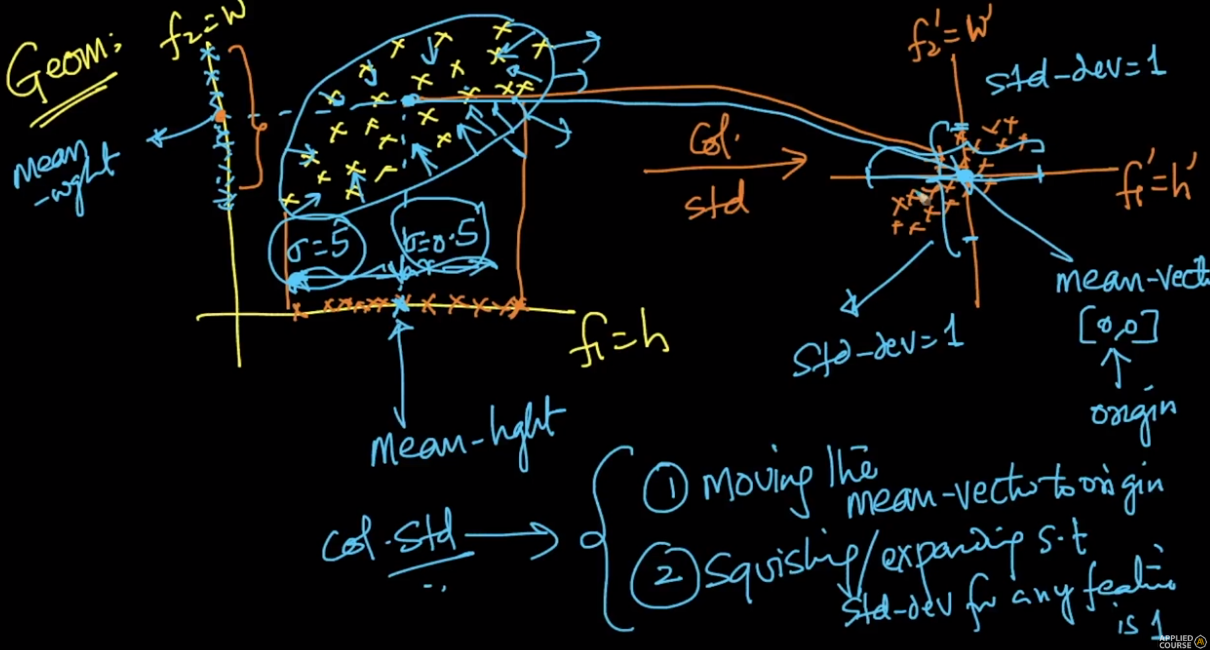 Geom:
f₂=w
mean
-wght
σ=5
σ=0.5
f₁=h
mean-hght
Col.
std
f₂'=w'
std-dev=1
f₁'=h'
mean-vect
[0,0]
origin
std-dev=1
Col.Std
① Moving the
mean-vector to origin
② Squishing/expanding s.t
std-dev for any feature
is 1
APPLIED
COURSE